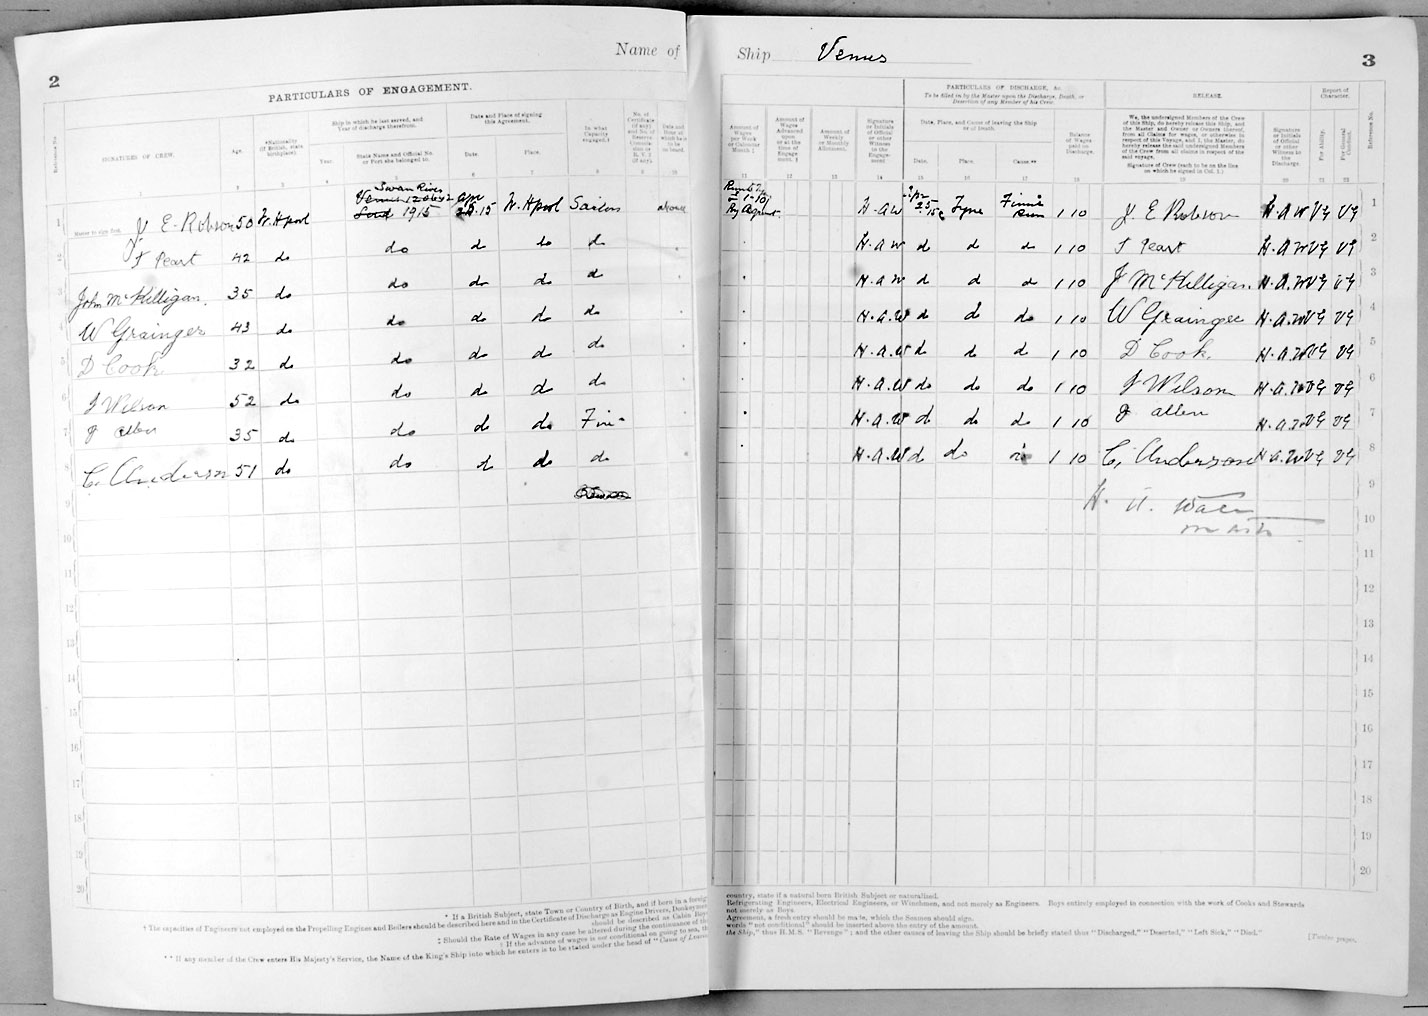 Name of Ship Venus
2
3
PARTICULARS OF ENGAGEMENT.
PARTICULARS OF DISCHARGE, &c.
To be filled in by the Master upon the Discharge, Death, or Desertion of any Member of his Crew.
RELEASE.
Report of Character.
Reference No.
SIGNATURES OF CREW.
Age.
*Nationality (if British, state birthplace).
Ship in which he last served, and Year of discharge therefrom.
Year.
State Name and Official No. or Port she belonged to.
Date and Place of signing this Agreement.
Date.
Place.
In what Capacity engaged.†
Amount of Wages per Week or Calendar Month.‡
Amount of Wages Advanced upon or at the time of Engagement.‡
Amount of Weekly or Monthly Allotment.
Signature or Initials of Official or other Witness to the Engagement
Date, Place, and Cause of leaving the Ship or of Death.
Date.
Place.
Cause.**
Balance of Wages paid on Discharge.
We, the undersigned Members of the Crew of this Ship, do hereby release this Ship, and the Master and Owner or Owners thereof, from all Claims for wages, or otherwise in respect of this Voyage, and I, the Master, do hereby release the undersigned Members of the Crew from all claims in respect of the said voyage.
Signature of Crew (each to be on the line on which he signed in Col. 1.)
Signature or Initials of Official or other Witness to the Discharge.
For Ability.
For General Conduct.
Reference No.
1 Master to sign first. J E Robson 50 W. Hpool Swan River 1915 Apr 15 W. Hpool Sailor above
H.A.W Tyne 1 10 J E Robson H.A.W VG VG 1
2 J Peart 42 do do do do d H.a.w d d d 1 10 J Peart H.A.W VG VG 2
3 John McKilligan. 35 do do do do d H.a.w d d d 1 10 J McKilligan. H.A.W VG VG 3
4 W Grainger 43 do do do do do H.a.W d d do 1 10 W Grainger H.A.W VG VG 4
5 D Cook 32 do do do do do H.a.W d do d 1 10 D Cook. H.A.W VG VG 5
6 J Wilson 52 do do do do do H.a.W do do do 1 10 J Wilson H.A.W VG VG 6
7 J allen 35 do do do do H.a.W d do do 1 10 J allen H.A.W VG VG 7
8 C. Anderson 51 do do d do do H.a.W d do 1 10 C. Anderson H.A.W VG VG 8
9 9
10 10
11 11
12 12
13 13
14 14
15 15
16 16
17 17
18 18
19 19
20 20
* If a British Subject, state Town or Country of Birth, and if born in a foreign country, state if a natural born British Subject or naturalised.
† The capacities of Engineers not employed on the Propelling Engines and Boilers should be described here and in the Certificate of Discharge as Engine Drivers, Donkeymen, Refrigerating Engineers, Electrical Engineers, or Winchmen, and not merely as Engineers. Boys entirely employed in connection with the work of Cooks and Stewards
should be described as Cabin Boys not merely as Boys.
‡ Should the Rate of Wages in any case be altered during the continuance of the Agreement, a fresh entry should be made, which the Seamen should sign.
‡ If the advance of wages is not conditional on going to sea, the words "not conditional" should be inserted above the entry of the amount.
** If any member of the Crew enters His Majesty's Service, the Name of the King's Ship into which he enters is to be stated under the head of "Cause of Leaving the Ship," thus H.M.S. "Revenge"; and the other causes of leaving the Ship should be briefly stated thus "Discharged," "Deserted," "Left Sick," "Died."
[Twelve pages.